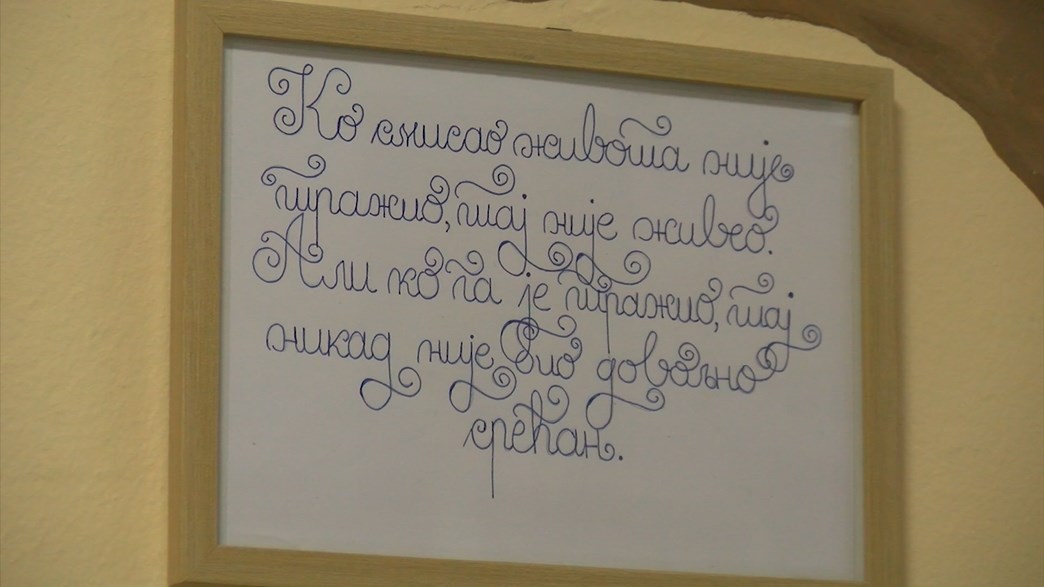 Ко смисао живота није
тражио, тај није живео.
Али ко га је тражио, тај
никад није био довољно
срећан.